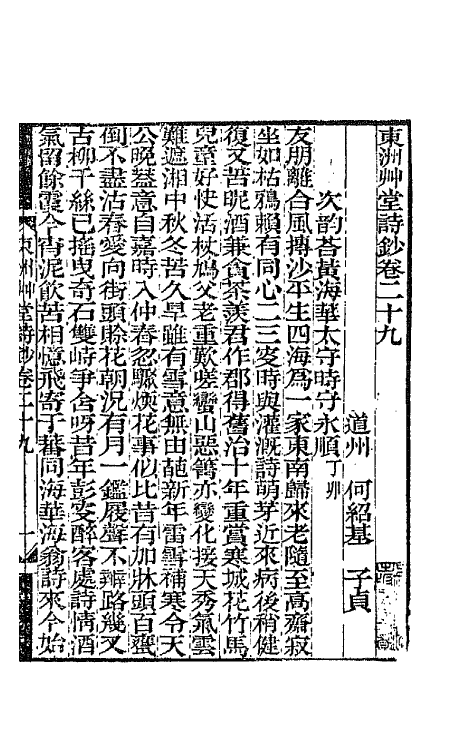 東洲艸堂詩鈔卷二十九
道州 何紹基 子貞
次韵荅黃海華太守時守永順丁卯
友朋離合風摶沙平生四海爲一家東南歸來老隨至高齋寂
坐如枯鴉賴有同心二三叟時與灌漑詩萌芽近來病後稍健
復又苦昵酒兼貪茶羨君作郡得舊治十年重賞寒城花竹馬
兒童好恠活杖鳩父老重歎嗟蠻山惡箐亦變化接天秀氣雲
難遮湘中秋冬苦久旱雖有雪意無由葩新年雷雪補寒令天
公晚蓋意自嘉時入仲春忽驟煥花事似比昔有加牀頭百蠻
倒不盡沽春愛向街頭賒花朝況有月一鑑屐聲不辮路幾叉
古柳千絲已搖曳奇石雙峙爭谽呀昔年彭叟醉客處詩情酒
氣留餘霞今宵泥飲苦相憶飛寄丁蕃同海華海翁詩來令始
東洲艸堂詩鈔卷二十九 一